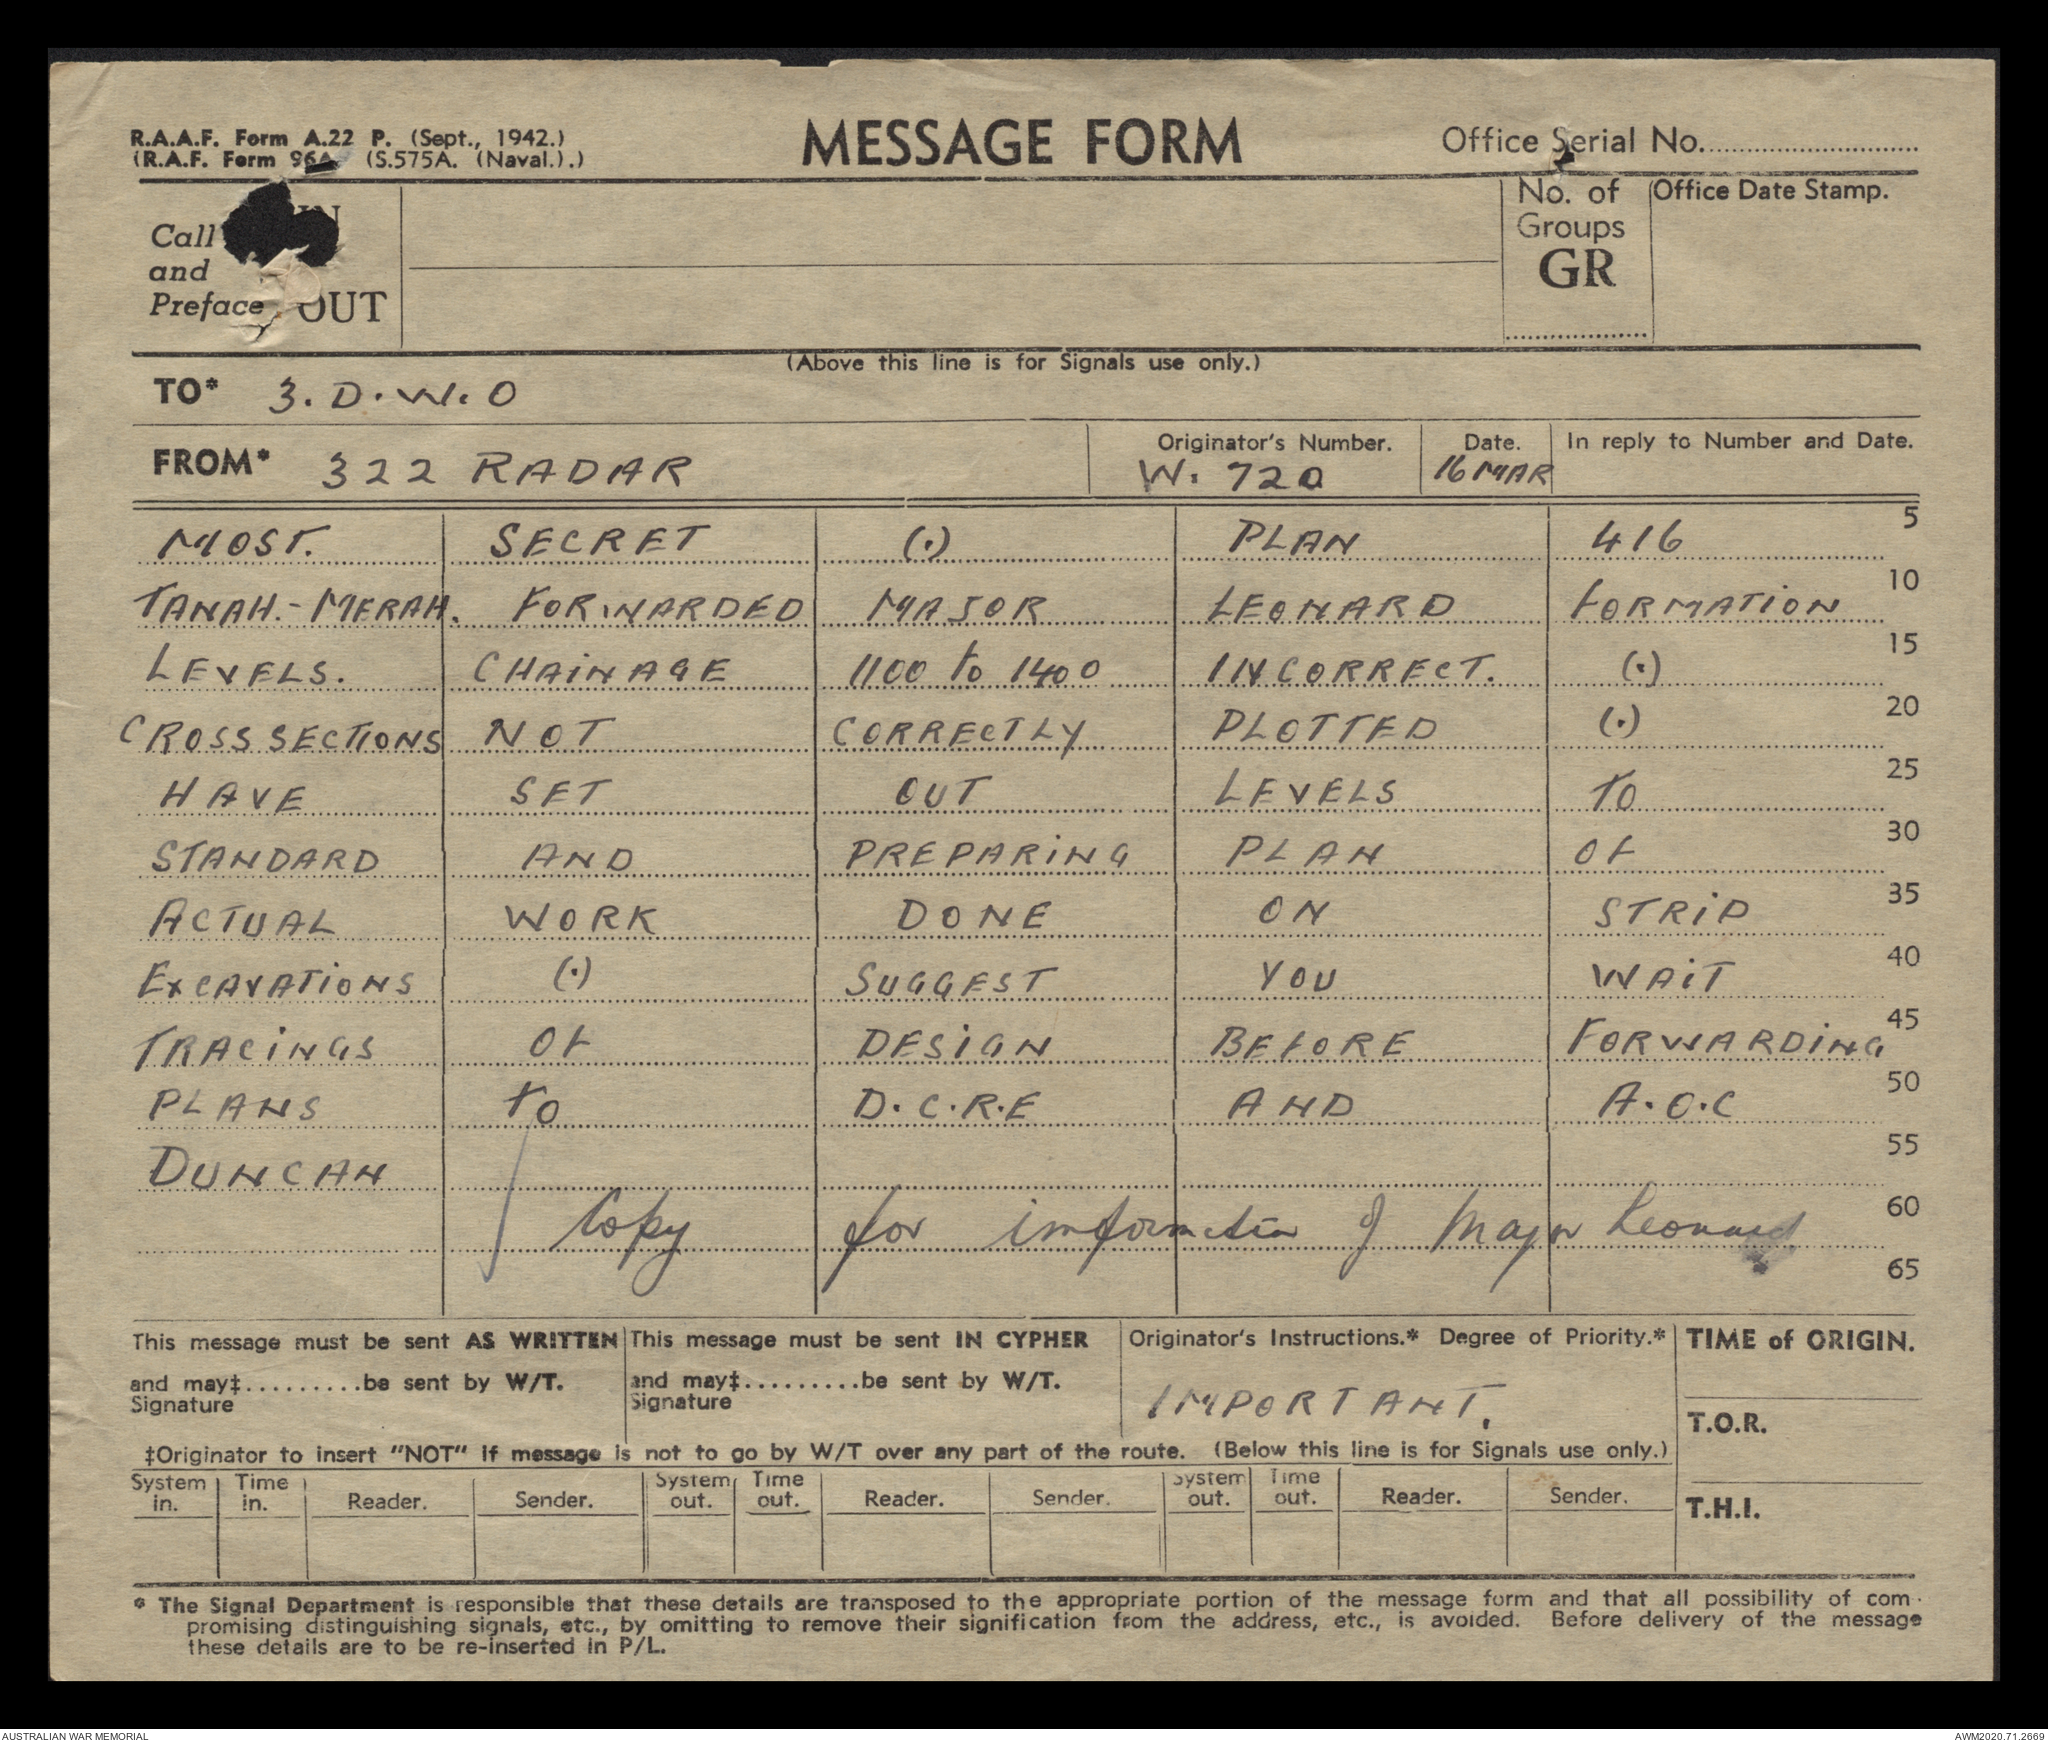 R.A.A.F. Form A.22 P. (Sept., 1942.)
(R.A.F. Form 96A. (S.575A. (Naval.).)
MESSAGE FORM
Office Serial No.
Call IN
and
Preface OUT
No. of
Groups
GR
Office Date Stamp.
(Above this line is for Signals use only.)
TO* 3. D. W. O
FROM* 322 RADAR
Originator's Number.
W. 720
Date.
16 MAR
In reply to Number and Date.
MOST. SECRET (.) PLAN 416 5
TANAH.-MERAH. FORWARDED MAJOR LEONARD FORMATION 10
LEVELS. CHAINAGE 1100 to 1400 INCORRECT. (.) 15
CROSS SECTIONS NOT CORRECTLY PLOTTED (.) 20
HAVE SET OUT LEVELS TO 25
STANDARD AND PREPARING PLAN OF 30
ACTUAL WORK DONE ON STRIP 35
EXCAVATIONS (.) SUGGEST YOU WAIT 40
TRACINGS OF DESIGN BEFORE FORWARDING 45
PLANS TO D.C.R.E AND A.O.C 50
DUNCAN 55
Copy for information of Major Leonard 60
65
This message must be sent AS WRITTEN
and may‡.........be sent by W/T.
Signature
This message must be sent IN CYPHER
and may‡.........be sent by W/T.
Signature
Originator's Instructions.* Degree of Priority.*
IMPORTANT.
TIME of ORIGIN.
T.O.R.
T.H.I.
‡Originator to insert "NOT" if message is not to go by W/T over any part of the route. (Below this line is for Signals use only.)
System in. Time in. Reader. Sender. System out. Time out. Reader. Sender. System out. Time out. Reader. Sender.
* The Signal Department is responsible that these details are transposed to the appropriate portion of the message form and that all possibility of com-
promising distinguishing signals, etc., by omitting to remove their signification from the address, etc., is avoided. Before delivery of the message
these details are to be re-inserted in P/L.
AUSTRALIAN WAR MEMORIAL
AWM2020.71.2669